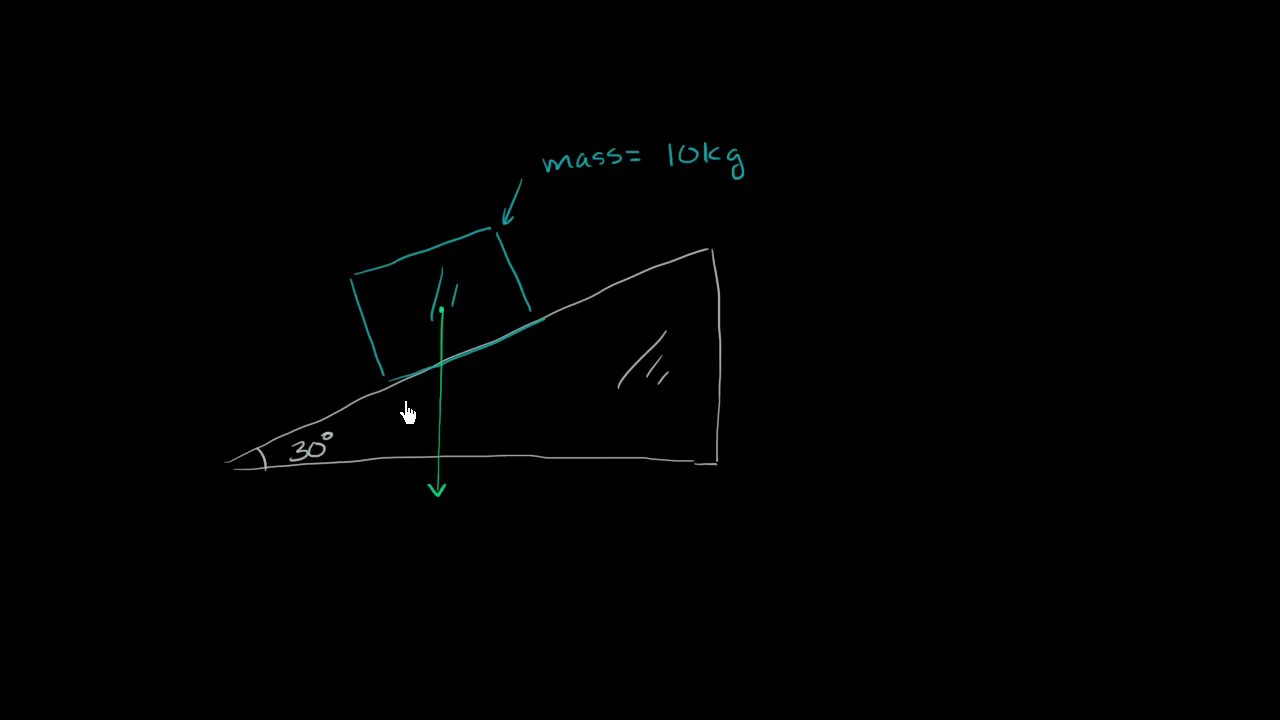 mass= 10kg
30°